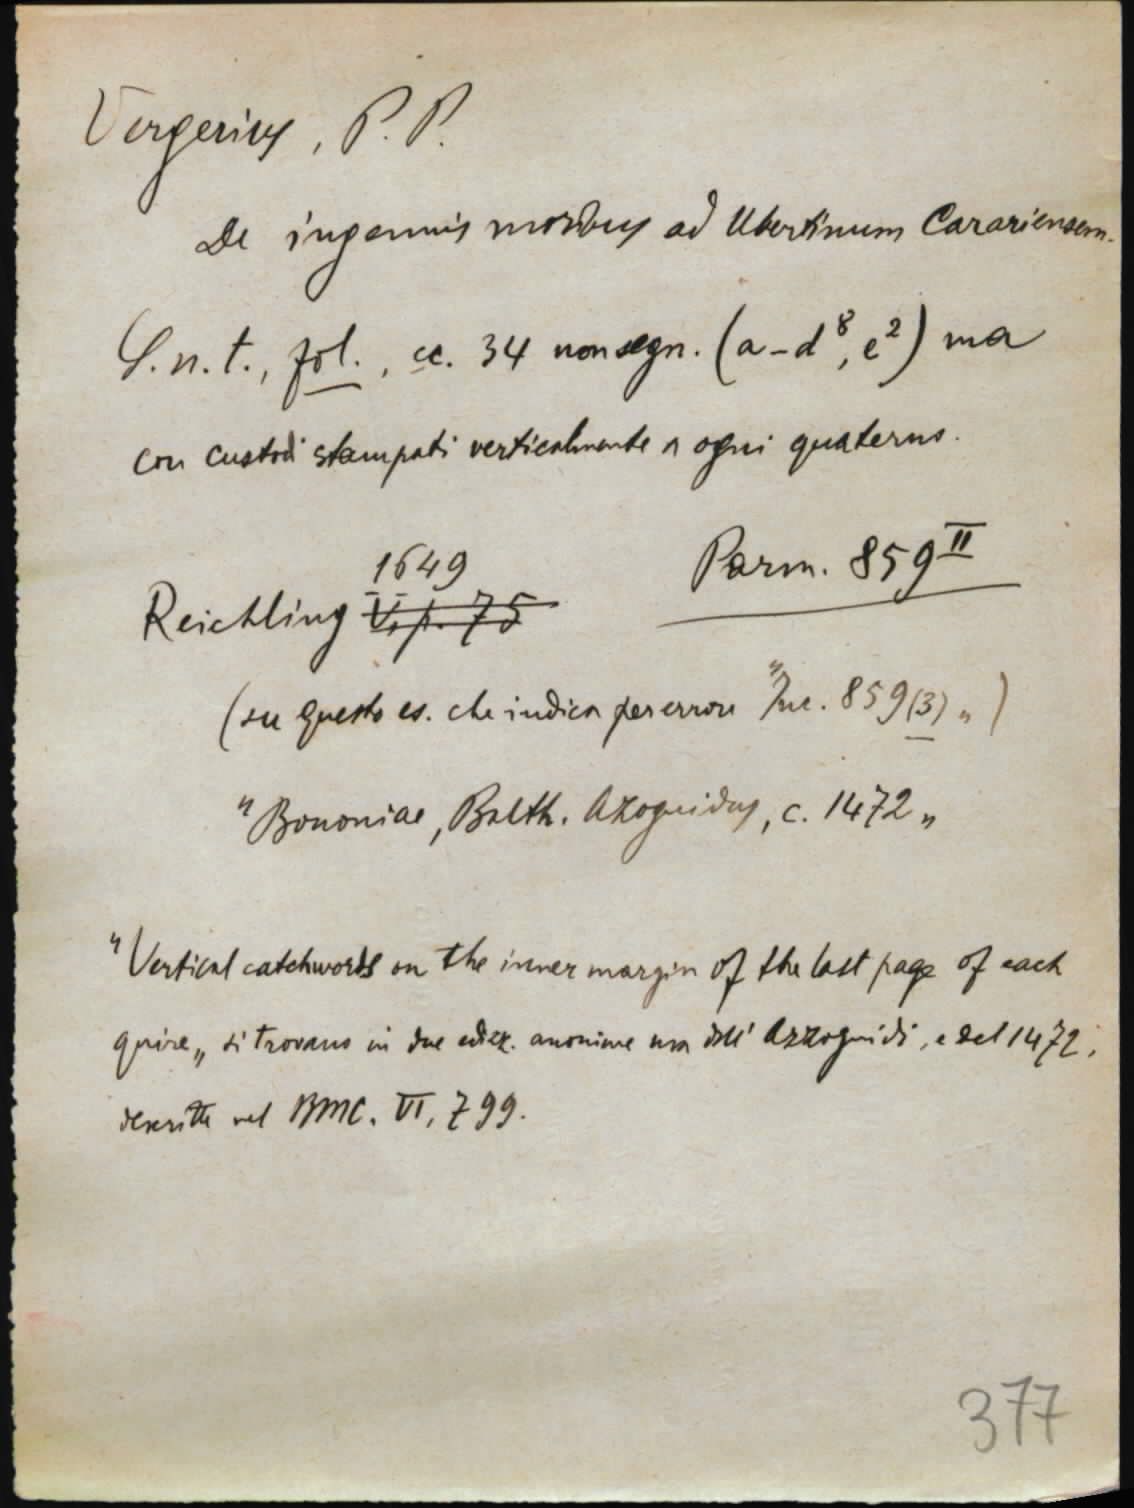 Vergerius, P. P.
De ingenuis moribus ad Ubertinum Carariensem.
S.n.t., fol., cc. 34 non segn. (a-d⁸, e²) ma
con custodi stampati verticalmente a ogni quaterno.
1649
Parm. 859 II
Reichling V, p. 75
(su questo es. che indica per errore "Inc. 859(3)„)
"Bononiae, Balth. Azoguidus, c. 1472„
"Vertical catchwords on the inner margin of the last page of each
quire„ si trovano in due ediz. anonime ma dell'Azzoguidi, e del 1472,
descritte nel BMC. VI, 799.
377